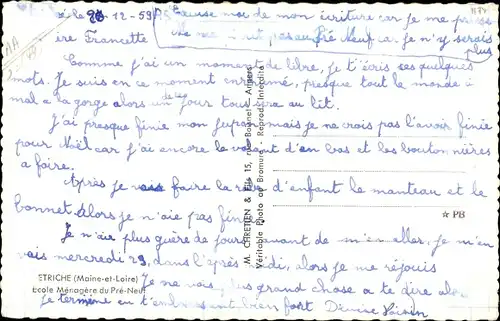 le 20-12-59
Excuse moi de mon écriture car je me presse
Francette
pas au Pré Neuf car je n'y serais
plus
Comme j'ai un moment de libre, je t'écris ces quelques
mots. Je suis en ce moment enrhumé, presque tout le monde à
mal a la gorge alors un de ces jour tous sera au lit.
J'ai presque finie mon jupon mais je ne crois pas l'avoir finie
pour Noël car j'ai encore le volant d'en bas et les boutonnières
a faire.
Après je vais faire la robe d'enfant le manteau et le
bonnet. Alors je n'aie pas fini
Je n'aie plus guère de jours avant de m'en aller, je m'en
vais mercredi 23, dans l'après midi, alors je me réjouis
Je ne vois plus grand chose a te dire alors
je termine en t'embrassant bien fort
M. CHRETIEN & Fils 15, rue Boisnet - Angers
Véritable Photo au Bromure - Reprod. Interdite
☆ PB
ETRICHE (Maine-et-Loire)
Ecole Ménagère du Pré-Neuf